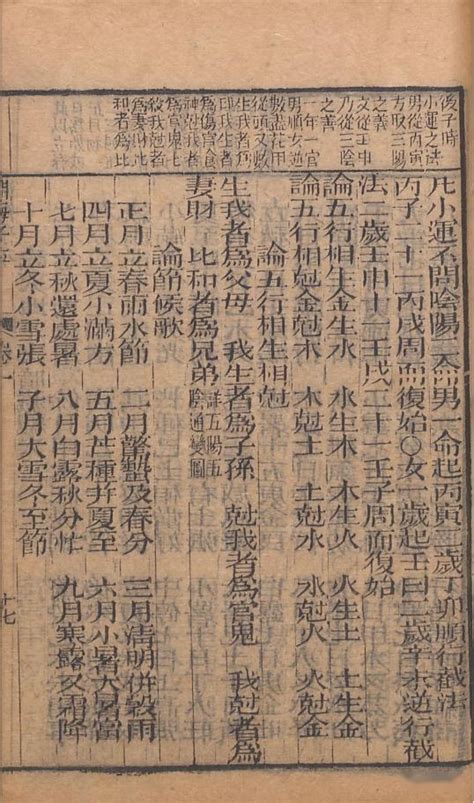 後子時
小運之法
男從丙寅
方取三陽
之義
女從壬申
乃從三陰
之善
一年一官
男順女逆
數盡花甲
從頭又數
生我者爲
印我生者
爲傷官食
神尅我者
爲官鬼七
殺我尅者
爲妻財比
和者爲比
凡小運不問陰陽二命男一命起丙寅二歲丁卯順行截法
丙子二十一丙戌周而復始○女一歲起壬申二歲辛未逆行截
法二歲壬申十一壬戌二十一壬子周而復始
論五行相生金生水 水生木 木生火 火生土 土生金
論五行相尅金尅木 木尅土 土尅水 水尅火 火尅金
論五行相生相尅
生我者爲父母 我生者爲子孫 尅我者爲官鬼 我尅者爲
妻財 比和者爲兄弟 詳五陽五
陰通變圖
論節候歌
正月立春雨水節 二月驚蟄及春分 三月清明併穀雨
四月立夏小滿方 五月芒種并夏至 六月小暑大暑當
七月立秋還處暑 八月白露秋分忙 九月寒露又霜降
十月立冬小雪張 子月大雪冬至節
卷一 十七